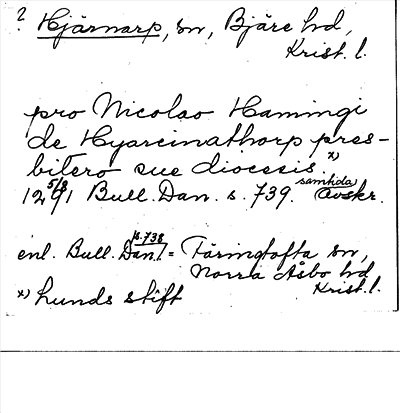 ? Hjärnarp, sn, Bjäre hd,
Krist. l.
pro Nicolao Hamingi
de Hyarcinathorp pres-
bitero sue diocesis x)
12 5/8 91 Bull. Dan. s. 739. samtida Avskr.
enl. Bull. Dan. (s. 738) = Färingtofta sn,
Norra Åsbo hd
Krist. l.
x) Lunds stift